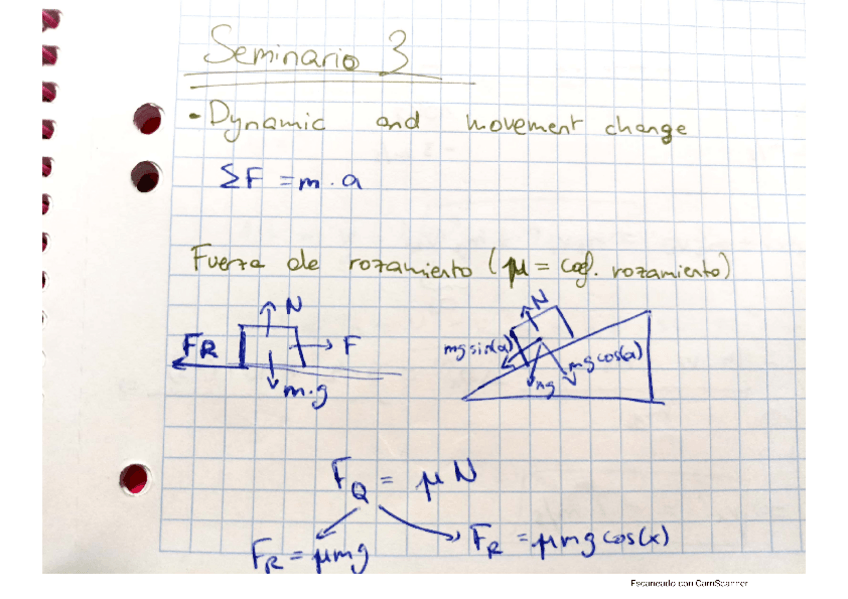 Seminario 3
- Dynamic and movement change
ΣF = m . a
Fuerza de rozamiento (μ = coef. rozamiento)
N
FR
F
m.g
N
mg sin(a)
mg cos(a)
mg
FQ = μ N
FR = μmg
FR = μmg cos(x)
Escaneado con CamScanner